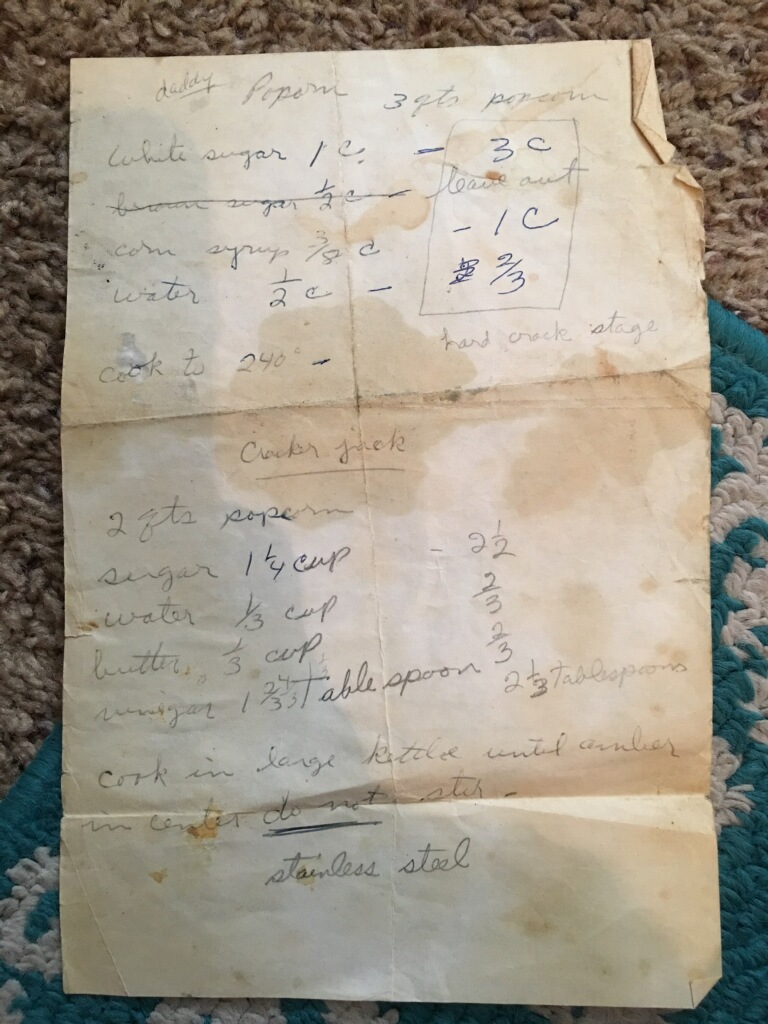 daddy Poporn 3 qts popcorn
white sugar 1 c. – 3 c
brown sugar 1/2 c – leave out
corn syrup 3/8 c – 1 C
water 1/2 c – 2/3
hard crack stage
cook to 240° –
Cracker jack
2 qts popcorn
sugar 1 1/4 cup – 2 1/2
water 1/3 cup 2/3
butter 1/3 cup 2/3
vinigar 1 Table spoon 2 1/3 tablespoons
cook in large kettle until amber
in center do not stir –
stainless steel